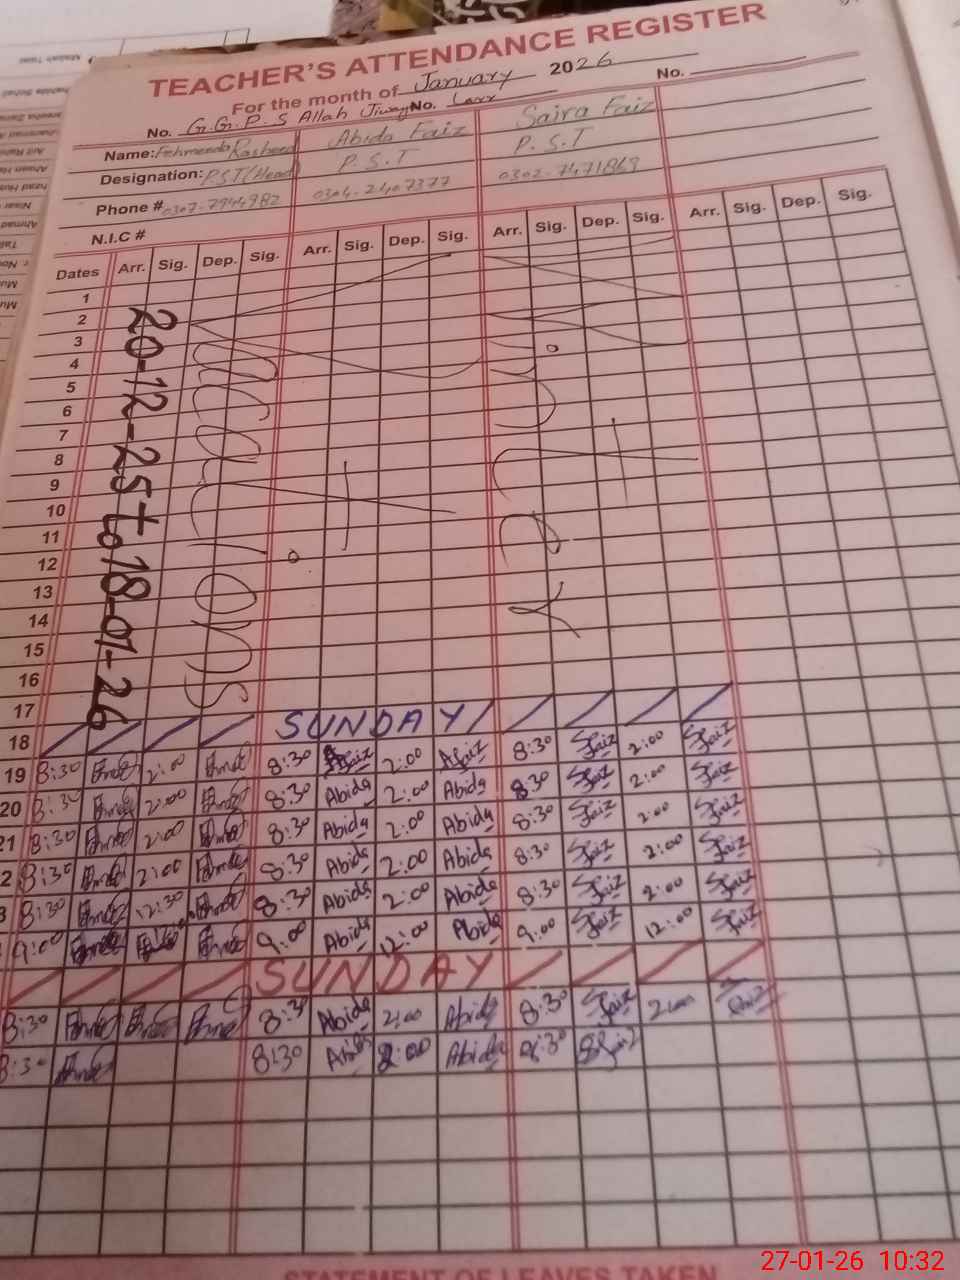 TEACHER'S ATTENDANCE REGISTER
For the month of January 2026
No. G.G.P.S Allah Jiwaya No. Larr No.
Name: Fehmeeda Rasheed Abida Faiz Saira Faiz
Designation: P.S.T (Head) P.S.T P.S.T
Phone # 0307-7944982 0304-2407377 0302-7471869
N.I.C #
Dates Arr. Sig. Dep. Sig. Arr. Sig. Dep. Sig. Arr. Sig. Dep. Sig. Arr. Sig. Dep. Sig.
1
2
3
4
5
6
7
8
9
10
11
12
13
14
15
16
17
20-12-25 to 18-01-26
18 SUNDAY
19 8:30 2:00 8:30 Afaiz 2:00 Afaiz 8:30 Sfaiz 2:00 Sfaiz
20 8:30 2:00 8:30 Abida 2:00 Abida 8:30 Sfaiz 2:00 Sfaiz
21 8:30 2:00 8:30 Abida 2:00 Abida 8:30 Sfaiz 2:00 Sfaiz
2 8:30 2:00 8:30 Abida 2:00 Abida 8:30 Sfaiz 2:00 Sfaiz
3 8:30 12:30 8:30 Abida 2:00 Abida 8:30 Sfaiz 2:00 Sfaiz
9:00 9:00 Abida 12:00 Abida 9:00 Sfaiz 12:00 Sfaiz
SUNDAY
8:30 8:30 Abida 2:00 Abida 8:30 Sfaiz 2:00 Sfaiz
8:30 8:30 Abida 2:00 Abida 8:30 SFaiz
STATEMENT OF LEAVES TAKEN
27-01-26 10:32